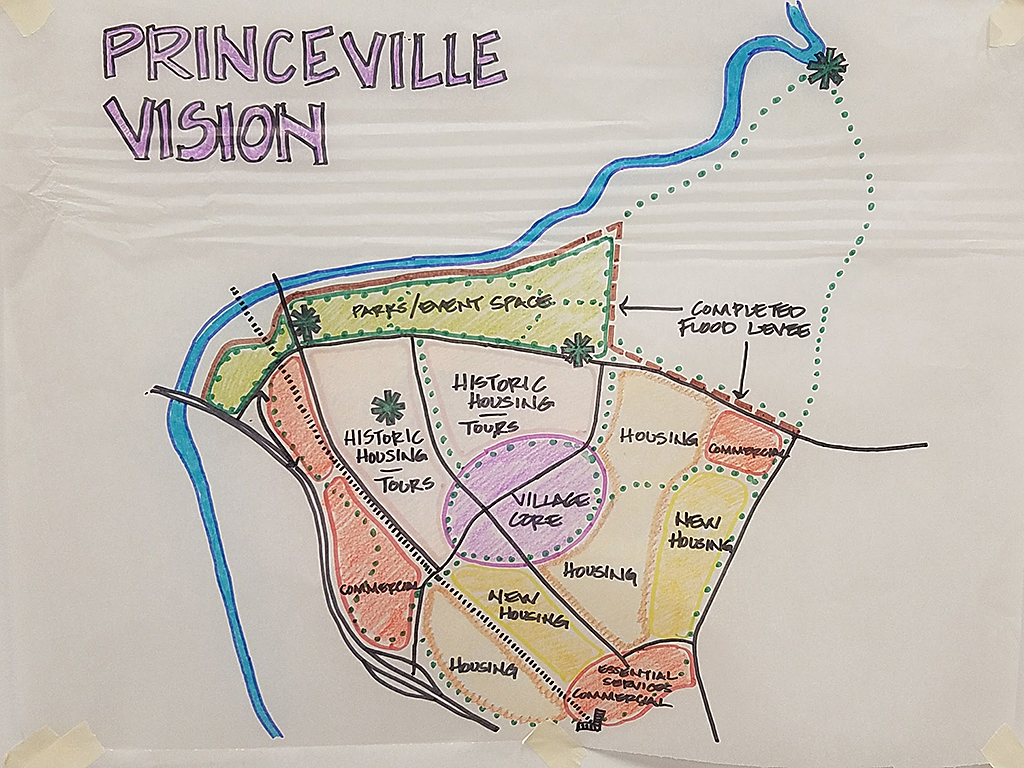 PRINCEVILLE
VISION
PARKS/EVENT SPACE
COMPLETED
FLOOD LEVEE
HISTORIC
HOUSING
—
TOURS
HISTORIC
HOUSING
—
TOURS
HOUSING
COMMERCIAL
VILLAGE
CORE
NEW
HOUSING
HOUSING
COMMERCIAL
NEW
HOUSING
HOUSING
ESSENTIAL
SERVICES
COMMERCIAL